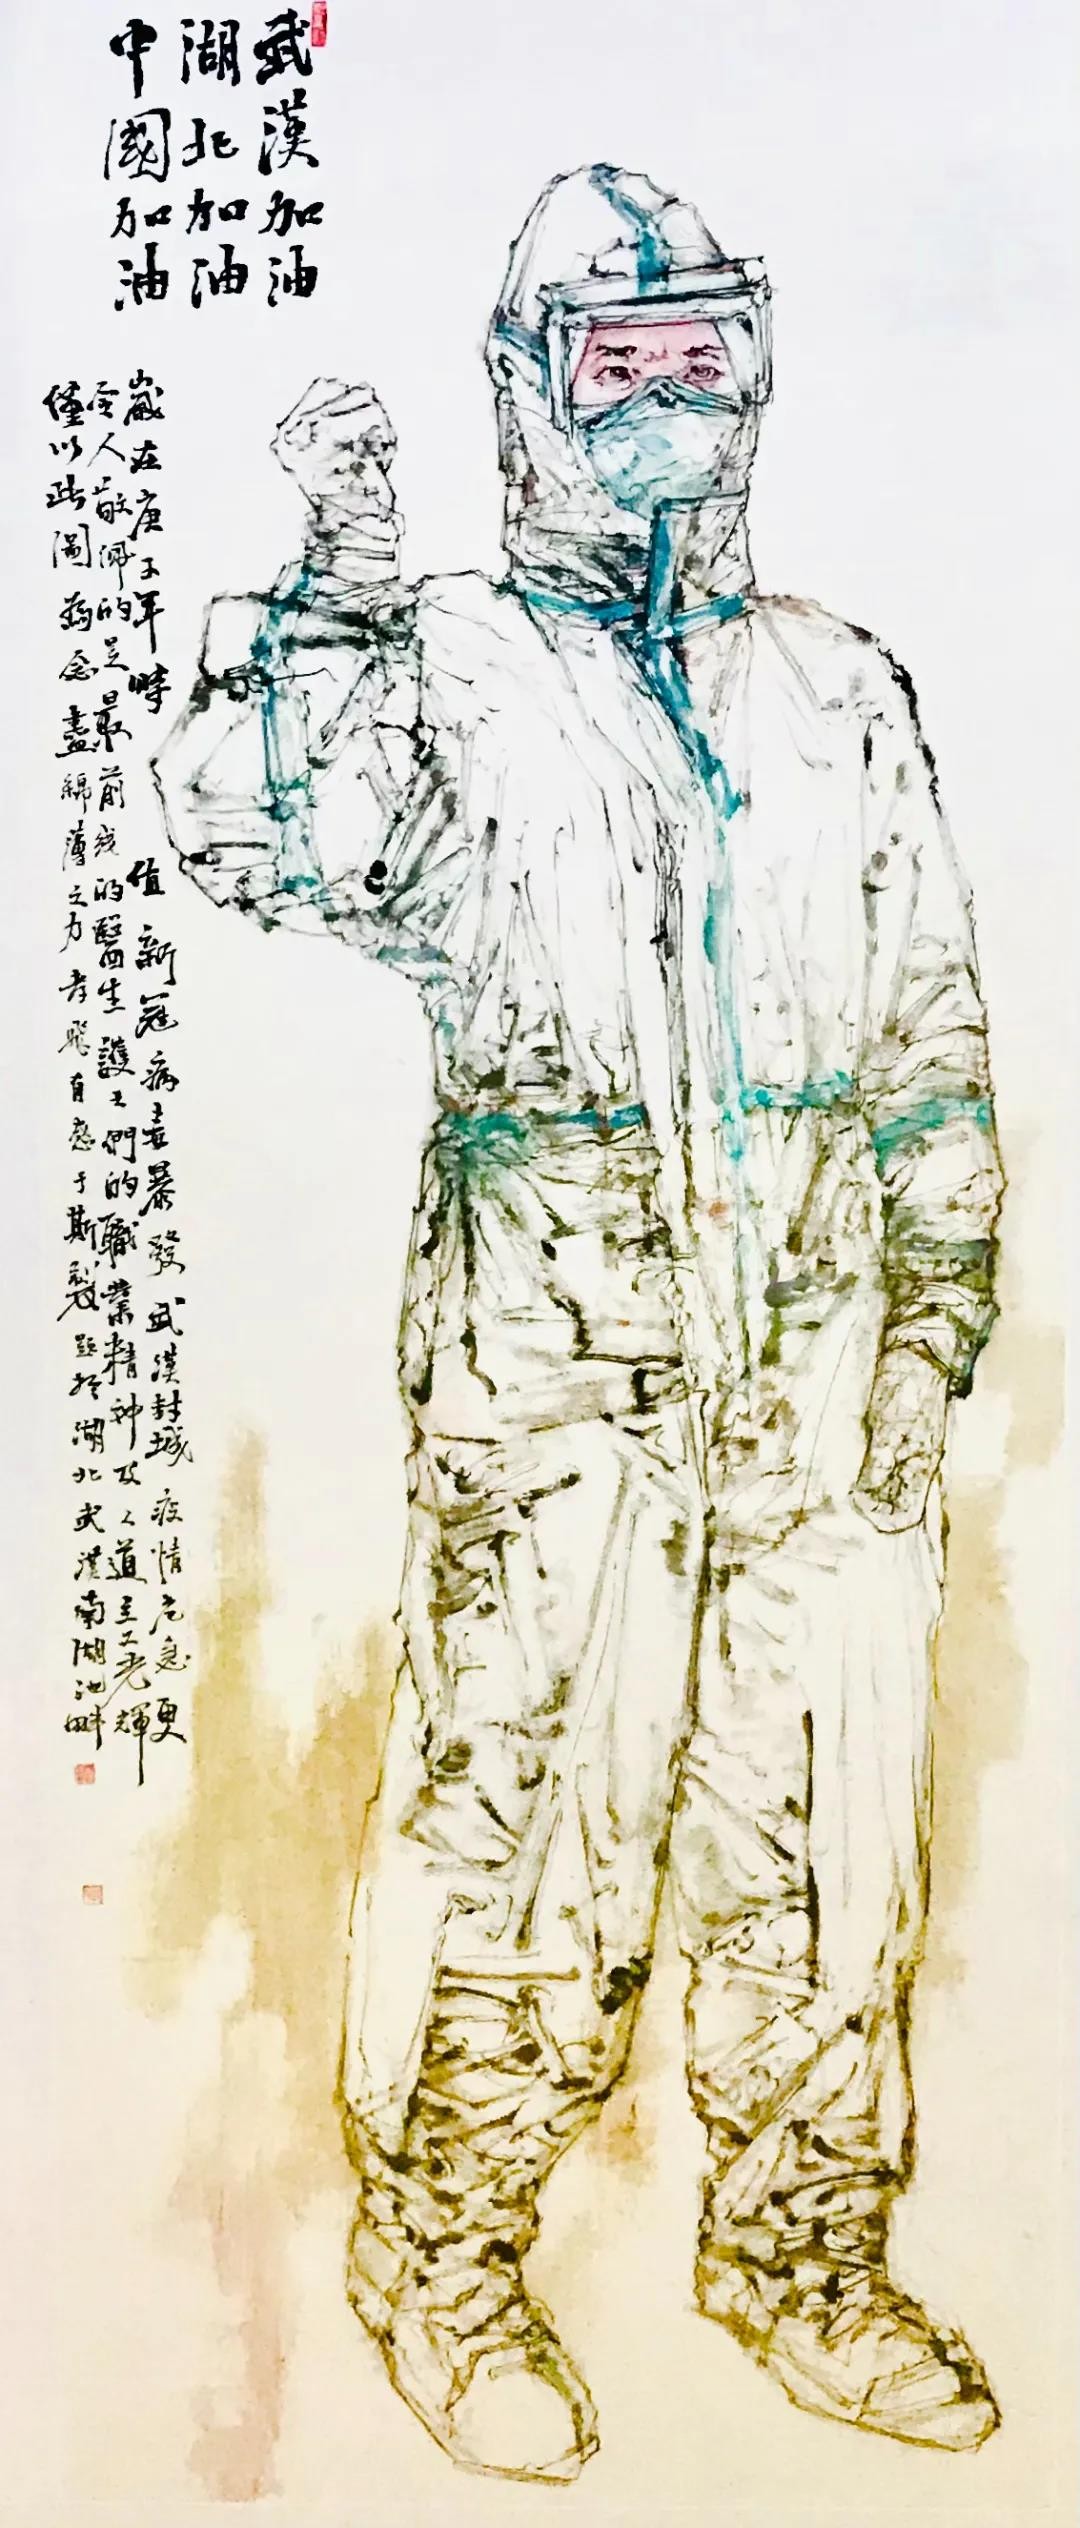 武漢加油
湖北加油
中國加油
歲在庚子年時值新冠病毒暴發武漢封城疫情危急更
令人敬佩的是最前线的醫生護士們的職業精神及人道主义光輝
僅以此圖為念盡綿薄之力孝飛有感于斯製题於湖北武漢南湖池畔